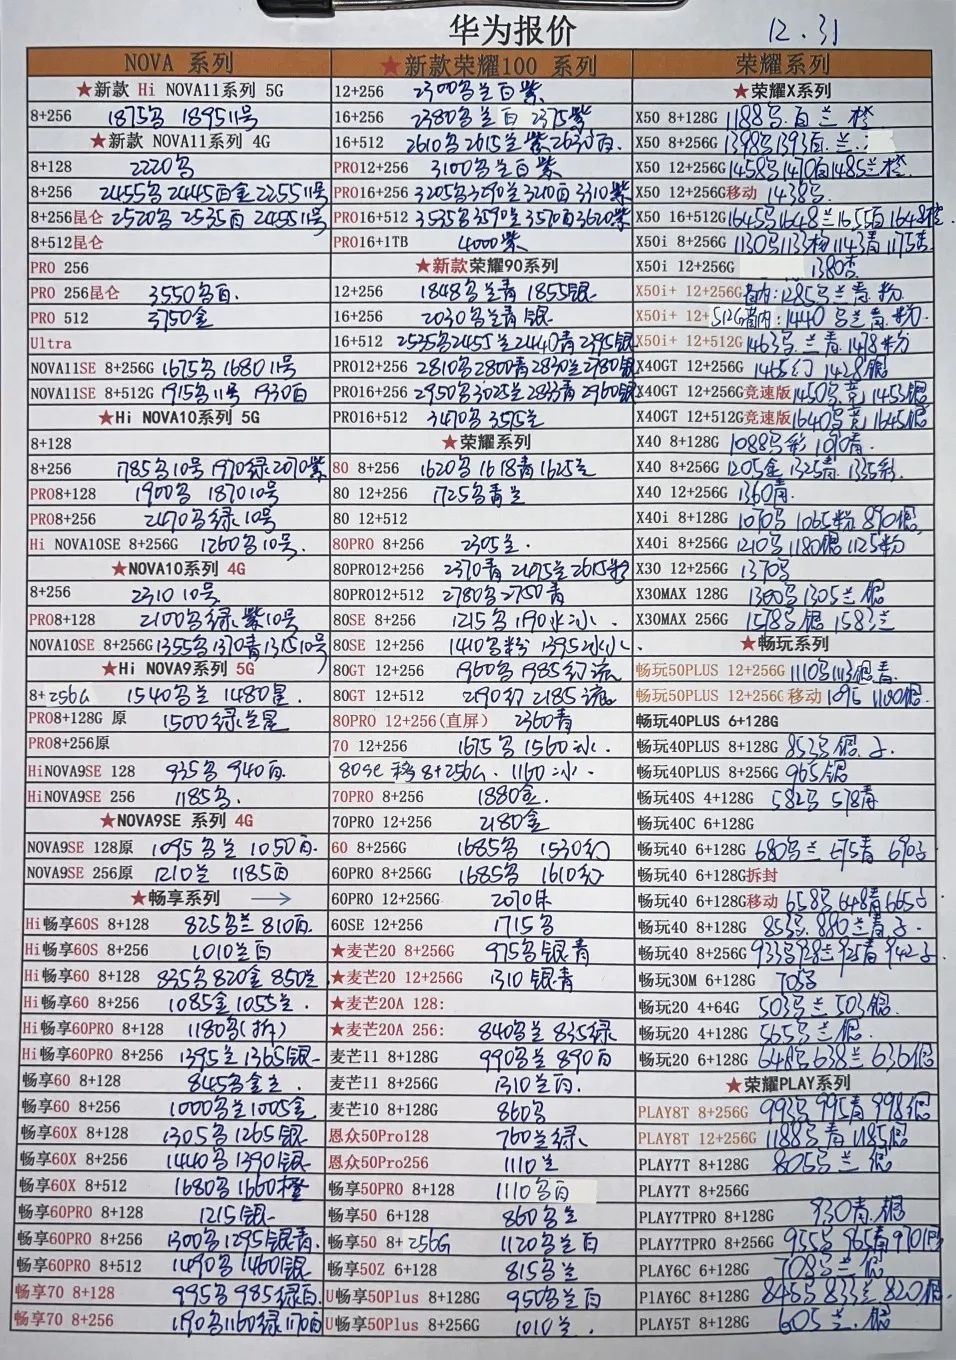 华为报价 12.31
NOVA 系列
★新款 Hi NOVA11系列 5G
8+256 1875多 1895 11号
★新款 NOVA11系列 4G
8+128 2220多
8+256 2455多 2445百金 2255 11号
8+256昆仑 2520多 2535百 2455 11号
8+512昆仑
PRO 256
PRO 256昆仑 3550多百.
PRO 512 3750金
Ultra
NOVA11SE 8+256G 1675多 1680 11号
NOVA11SE 8+512G 1915多 11号 1930百
★Hi NOVA10系列 5G
8+128
8+256 1785多10号 1970绿 2070紫
PRO8+128 1900多 1870 10号
PRO8+256 2470多绿.10号
Hi NOVA10SE 8+256G 1260多10号.
★NOVA10系列 4G
8+256 2310 10号
PRO8+128 2100多绿.紫10号
NOVA10SE 8+256G 1355多1370青1315 10号
★Hi NOVA9系列 5G
8+256G 1540多兰 1480星
PRO8+128G 原 1500绿兰星
PRO8+256原
HiNOVA9SE 128 935多 940百.
HiNOVA9SE 256 1185多.
★NOVA9SE 系列 4G
NOVA9SE 128原 1095多兰 1050百.
NOVA9SE 256原 1210兰 1185百
★畅享系列 →
Hi畅享60S 8+128 825多兰 810百.
Hi畅享60S 8+256 1010兰百
Hi畅享60 8+128 835多 820金 850兰
Hi畅享60 8+256 1085金 1055兰.
Hi畅享60PRO 8+128 1180多(拆)
Hi畅享60PRO 8+256 1395兰 1365银
畅享60 8+128 845多金兰.
畅享60 8+256 1000多兰1005金
畅享60X 8+128 1305多 1265银
畅享60X 8+256 1440多 1390银
畅享60X 8+512 1680多 1660橙
畅享60PRO 8+128 1215银
畅享60PRO 8+256 1300多1295银青.
畅享60PRO 8+512 1490多 1460银
畅享70 8+128 995多 985绿百.
畅享70 8+256 1190多1160绿1170百
★新款荣耀100 系列
12+256 2300多兰百紫
16+256 2380多兰百 2375紫
16+512 2610多 2615兰紫2630百.
PRO12+256 3100多兰百紫
PRO16+256 3205多3290兰3210百3310紫
PRO16+512 3535多3590兰3570百3620紫
PRO16+1TB 4000紫
★新款荣耀90系列
12+256 1848多兰青 1855银
16+256 2030多兰青银
16+512 2535多2455兰2440青2395银
PRO12+256 2810多2800青2830兰2780银
PRO16+256 2950多3025兰2833青2960银
PRO16+512 3470多 3575兰
★荣耀系列
80 8+256 1620多 1618青1625兰
80 12+256 1725多青兰
80 12+512
80PRO 8+256 2305兰.
80PRO12+256 2370青 2495兰2615粉
80PRO12+512 2780多2750青
80SE 8+256 1215多 1190冰冰.
80SE 12+256 1410多粉 1395冰
80GT 12+256 1960多1985幻流
80GT 12+512 2190幻 2185流
80PRO 12+256(直屏) 2360青
70 12+256 1675多 1560冰.
80se 移 8+256G. 1160冰.
70PRO 8+256 1880金.
70PRO 12+256 2180金
60 8+256G 1685多 1530幻
60PRO 8+256G 1685多 1610幻
60PRO 12+256G 2070
60SE 12+256 1715多
★麦芒20 8+256G 975多银青
★麦芒20 12+256G 1310 银青
★麦芒20A 128:
★麦芒20A 256: 840多兰 835绿
麦芒11 8+128G 990多兰 890百
麦芒11 8+256G 1310兰百.
麦芒10 8+128G 860多
恩众50Pro128 760兰绿.
恩众50Pro256 1110兰
畅享50PRO 8+128 1110多百
畅享50 6+128 860多兰
畅享50 8+256G 1120多兰百
畅享50Z 6+128 815多兰
U畅享50Plus 8+128G 950多兰百
U畅享50Plus 8+256G 1010兰.
荣耀系列
★荣耀X系列
X50 8+128G 1188多.百兰橙
X50 8+256G 1398多1393百.兰.
X50 12+256G 1458多1470百1485兰橙.
X50 12+256G移动 1438多
X50 16+512G 1645多1648兰1655百1648橙.
X50i 8+256G 1130多1133粉1143青1175杏
X50i 12+256G 1380杏
X50i+ 12+256G 省内:1285多兰青.粉
X50i+ 12+512G省内:1440多兰青.粉.
X50i+ 12+512G 1463多.兰青1478粉
X40GT 12+256G 1465幻 1428银
X40GT 12+256G竞速版 1450多.竞 1455银
X40GT 12+512G竞速版 1640多竞 1645银
X40 8+128G 1088多彩 1090青.
X40 8+256G 1205金 1325青 1335彩.
X40 12+256G 1360青.
X40i 8+128G 1070多 1065粉 890银.
X40i 8+256G 1210多 1180银 1125粉
X30 12+256G 1370多
X30MAX 128G 1300多1305兰银
X30MAX 256G 1578多.银 1583兰
★畅玩系列
畅玩50PLUS 12+256G 1110多1113银青.
畅玩50PLUS 12+256G 移动 1095 1100银.
畅玩40PLUS 6+128G
畅玩40PLUS 8+128G 853多银.子.
畅玩40PLUS 8+256G 965银
畅玩40S 4+128G 582多 578青
畅玩40C 6+128G
畅玩40 6+128G 680多兰 675青 690子
畅玩40 6+128G拆封
畅玩40 6+128G移动 658多 648青 665子
畅玩40 8+128G 853多. 880兰青子.
畅玩40 8+256G 933多928兰925青942子.
畅玩30M 6+128G 705多
畅玩20 4+64G 503多兰 503银.
畅玩20 4+128G 565多兰银.
畅玩20 6+128G 648多638兰 636银
★荣耀PLAY系列
PLAY8T 8+256G 993多995青998银
PLAY8T 12+256G 1188多青 1185银
PLAY7T 8+128G 805多兰 银
PLAY7T 8+256G
PLAY7TPRO 8+128G 930青.银
PLAY7TPRO 8+256G 955多 965青970银
PLAY6C 6+128G 708多兰 银
PlAY6C 8+128G 845多 833兰820银.
PLAY5T 8+128G 605兰.银